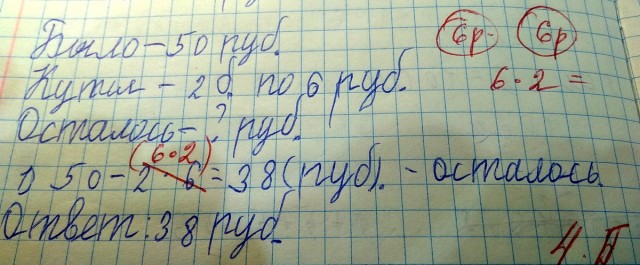 Было – 50 руб.
Купил – 2 б. по 6 руб.
Осталось – ? руб.
(6·2)
1) 50 – 2 · 6 = 38 (руб). – осталось.
Ответ: 38 руб.
6р. 6р
6·2 =